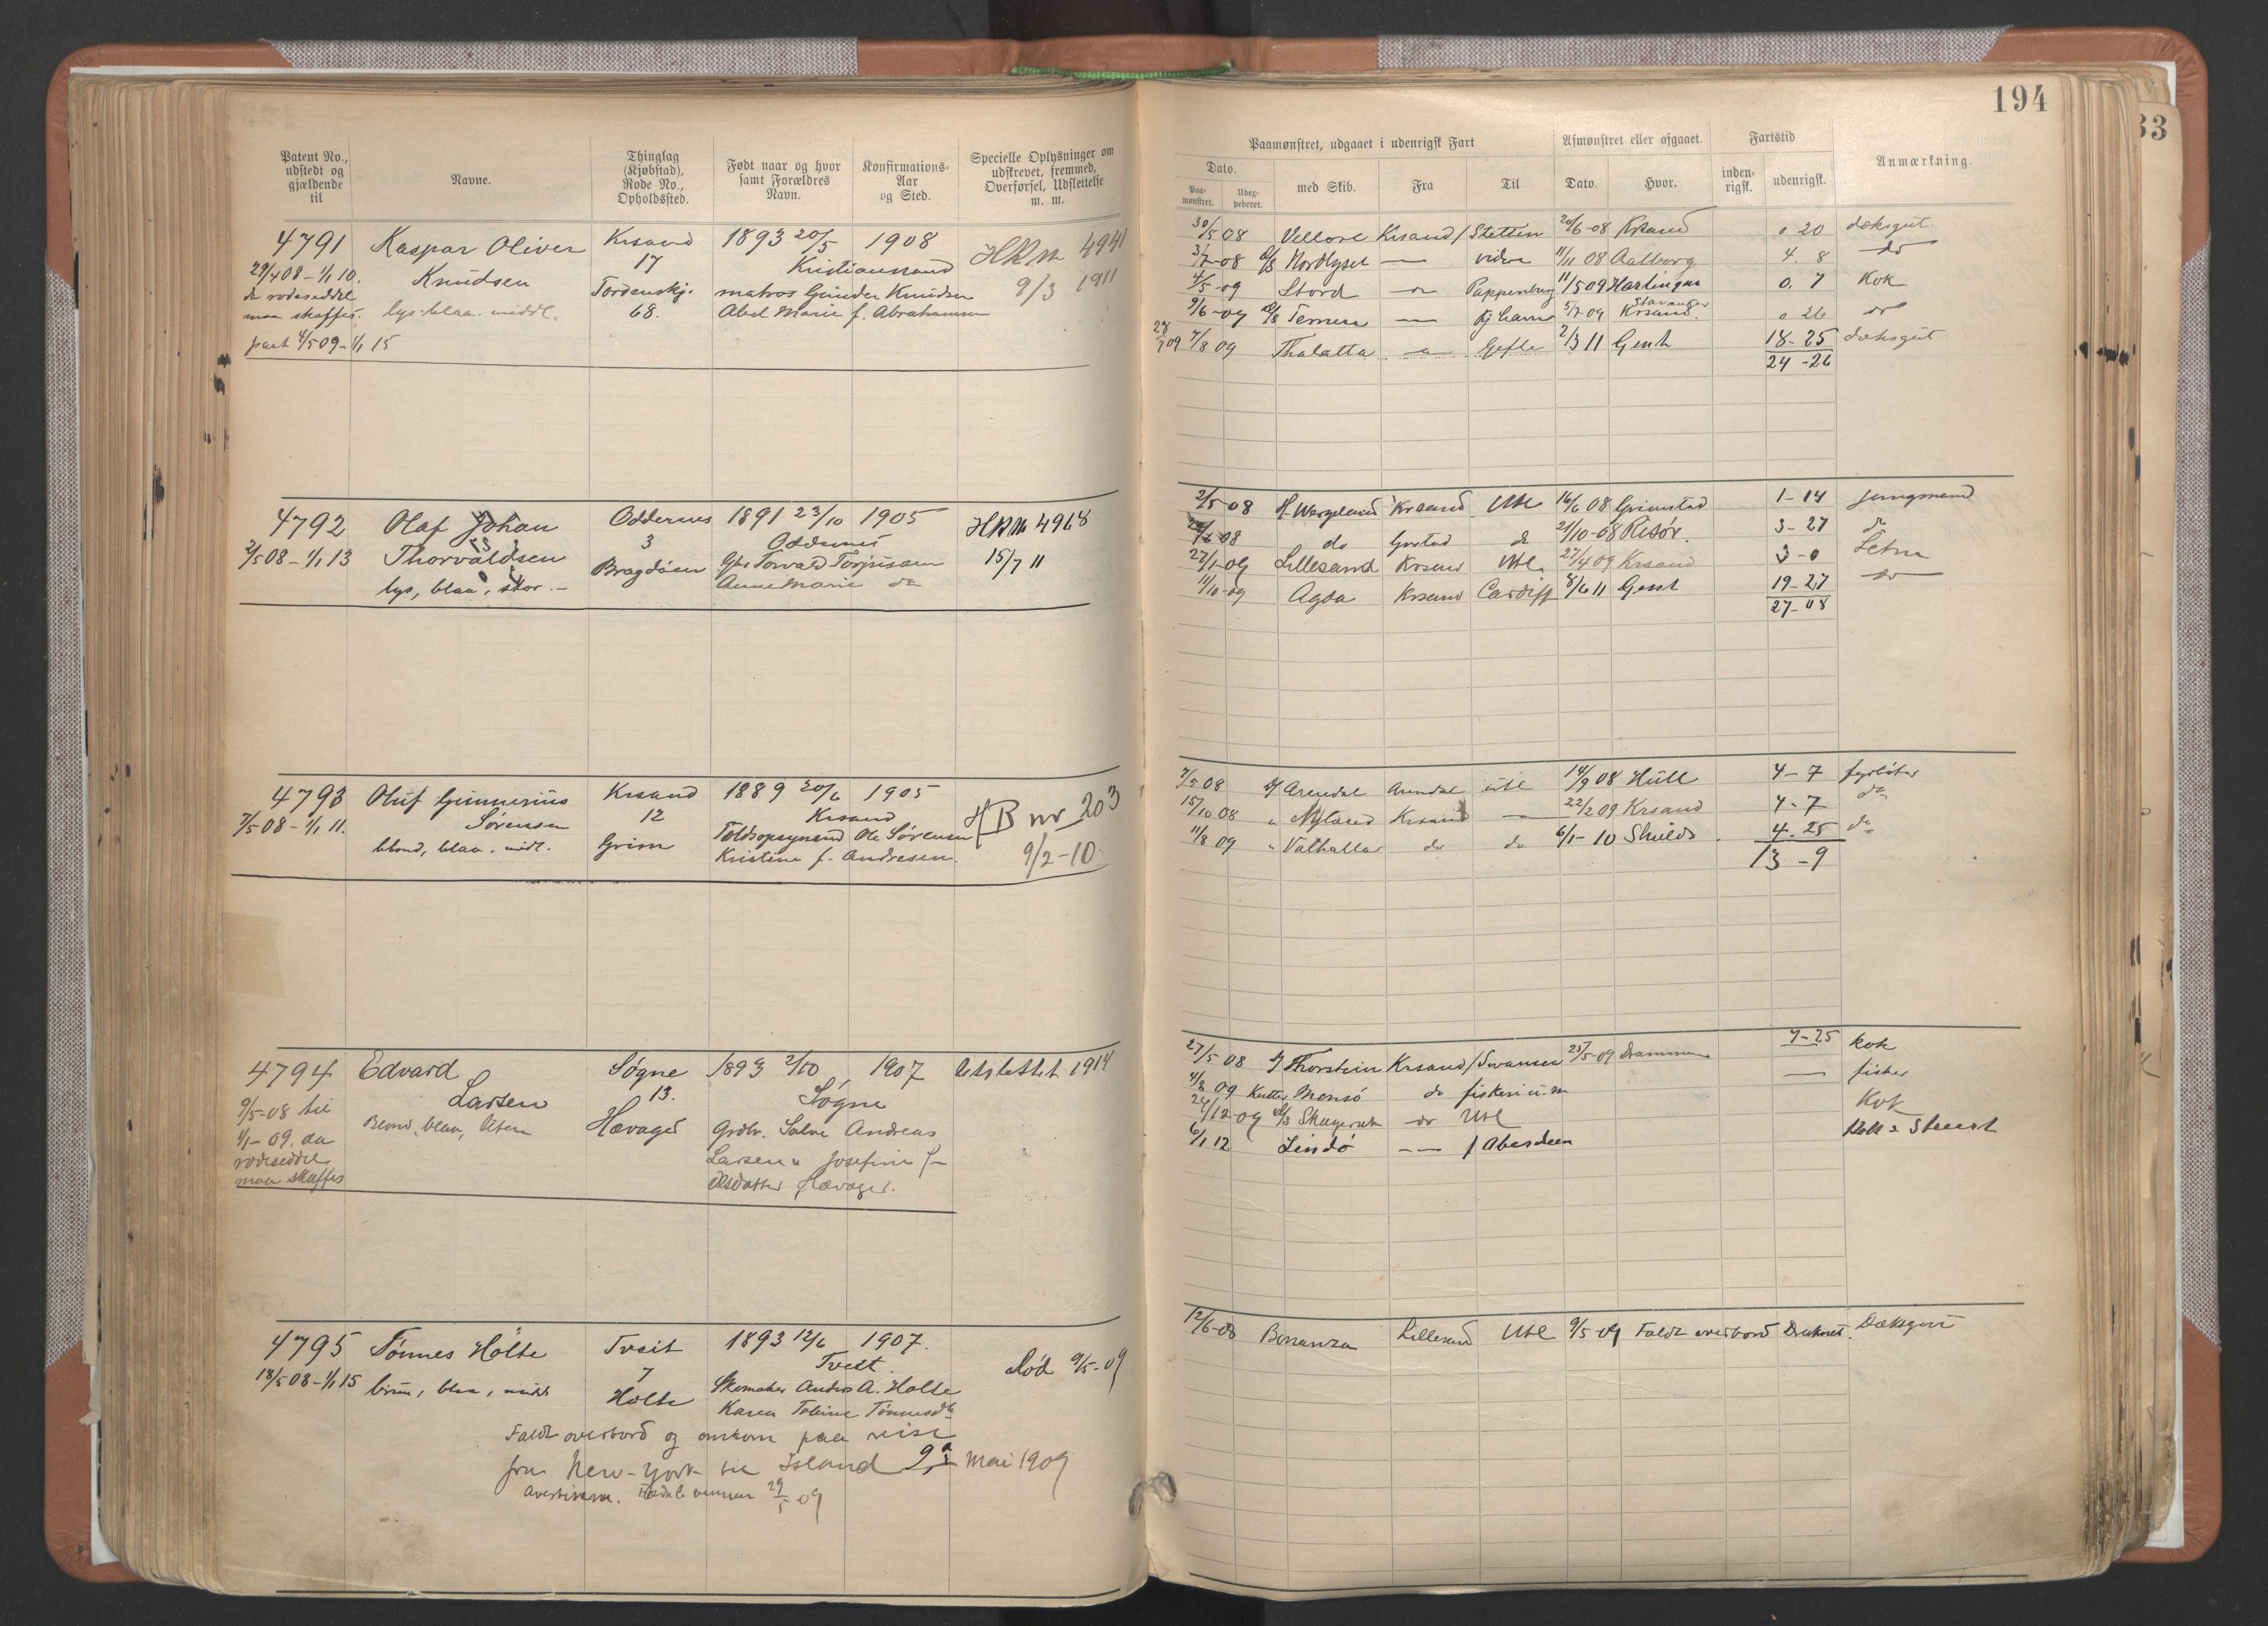 194
33
Patent No., udstedt og gjældende til
Navne.
Thinglag (Kjøbstad), Rode No., Opholdssted.
Født naar og hvor samt Forældres Navn.
Konfirmations-Aar og Sted.
Specielle Oplysninger om udskrevet, fremmed, Overførsel, Udslettelse m. m.
Paamønstret, udgaaet i udenrigsk Fart
Afmønstret eller afgaaet.
Fartstid
Anmærkning.
Dato.
Paa-mønstret.
med Skib.
Fra
Til
Dato.
Hvor.
inden-rigsk.
udenrigsk.
4791 Kaspar Oliver Krsand 1893 20/5 1908 HRM 4941
29/4 08 - 1/1 10. Knudsen 17 Kristianssand 9/3 1911
da rodeseddel Tordenskj. matros Gunder Knudsen
maa skaffes. lys. blaa. middl. 68. Abel Marie f. Abrahamsen
pact 4/5 09 - 1/1 15
30/5 08 Vellore Krsand / Stettin 20/6-08 Krsand 0 20 dæksgut
3/7-08 Nordlyset videre 11/11 08 Aalborg 4. 8 do
4/5-09 Stord Pappenburg 11/5 09 Harlingen 0. 7 Kok
9/6-09 Ternen Kj havn 5/7 09 Stavanger Krsand. 0 26 do
28/7 09 7/8 09 Thalatta Gefle 2/3 11 Gent 18-25 dæksgut
24-26
4792 Olaf Johan Oddernes 1891 23/10 1905 HRM 4968
2/5 08 - 1/1 13 Thorvaldsen 3 Oddernes 15/7 11
lys, blaa, stor.- Bragdøen Gbr Torvald Torjussen
Anne Marie do
2/5-08 H. Wergeland Krsand Utl 16/6 08 Grimstad 1-14 jungmand
08 do do 21/10-08 Risør. 3-27 do
27/1-09 Lillesand Krsand Utl. 27/4 09 Krsand 3-0 Letm
11/10-09 Agda Krsand Cardiff 8/6 11 Gent 19-27 do
27-08
4793 Oluf Gunnerius Krsand 1889 20/6 1905 HB nr 203
7/5 08 - 1/1 11. Sørensen 12 Krsand 9/2-10
blond, blaa. midl. Grim Toldopsynsmd Ole Sørensen
Kristine f. Andresen.
7/5 08 Arendal Arendal utl 14/9 08 Hull 4-7 fyrbøter
15/10 08 " Nyland Krsand 22/2 09 Krsand 4-7 do
11/8 09 " Valhalla do do 6/1-10 Shields 4.25 do
13-9
4794 Edvard Søgne 1893 2/10 1907 Utslettet 1914
9/5-08 til Larsen 13. Søgne
1/1-09. da Blond, blaa, liten Høvaged Grdbr. Salve Andreas
rodeseddel Larsen & Josefine f
maa skaffes
27/5 08 Thorstein Krsand / Swansea 25/5-09 Drammen 7-25 kok
4/8 09 Kutter Mensø do fiskeri u.m fisker
24/12-09 Skagerak do Utl Kok
6/1 12 Lindø / Aberdeen Kok & Stuert
4795 Tønnes Holte Tveit 1893 12/6 1907. død 9/5-09
18/5 08 - 1/1 15 brun, blaa, midd 7 Tveit.
Holte Skomaker Anders A. Holte
Karen Tobine Tønnesdtr
Faldt overbord og omkom paa reise
fra New-York til Island 9de Mai 1909
29/5 09
12/6-08 Bonanza Lillesand Utl 9/5-09 Faldt overbord Druknet. Dæksgut